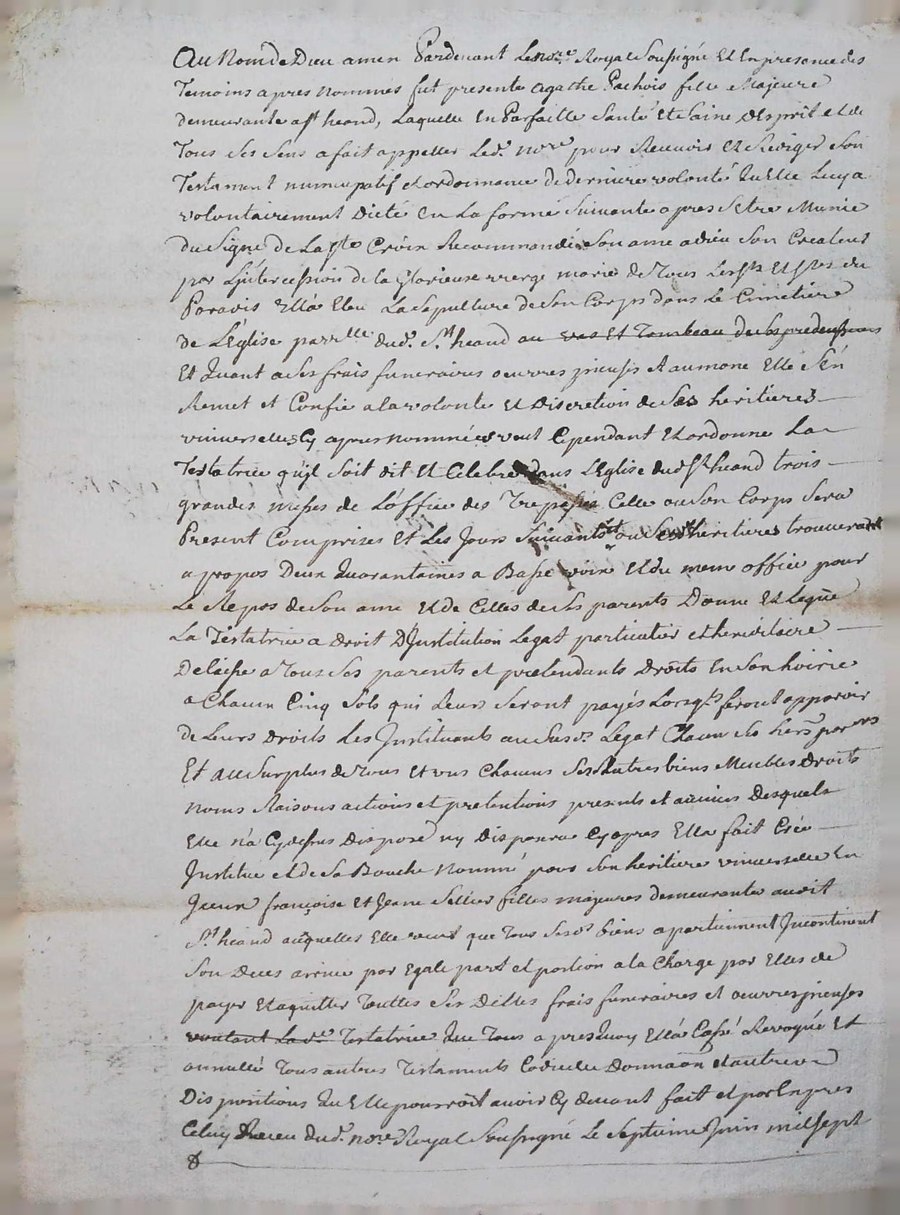 Au Nom de Dieu amen Pardevant Le no.re Royal Soussigné Et En presance des
Temoins apres nommés fut presente agathe Pachois fille Majeure
demeurante a st heand, Laquelle En Parfaitte Santé Et Saine d'Esprit et de
Tous Ses Sens a fait appeller Led. no.re pour Recevoir Et Rediger Son
Testament nuncupatif Et ordonnance de derniere volonté qu'Elle Luy a
volontairement Dicté En La forme Suivante apres S'etre Munie
du Signe de La ste Croix Recommandé Son ame a dieu Son Createur
par L'intercession de la Glorieuse vierge marie de Tous Les sts Et stes du
Paradis Ella Eleu La Sepulture de Son Corps dans Le Cimetiere
de L'Eglise par.lle dud. St heand au vas Et Tombeau de Ses predecesseurs
Et Quant a Ses frais funeraires oeuvres pieuses Et aumone Elle S'en
Remet et Confie a la volonte Et Discretion de Ses heritieres
universelles Cy apres nommées veut Cependant Et ordonne La
Testatrice qu'jl Soit dit Et Celebré dans L'Eglise dud st heand trois
grandes messes de L'office des Trepassés Celle ou Son Corps Sera
Present Comprises Et Les Jours Suivants ou Sesd heritieres trouveront
a propos Deux Quarantaines a Basse voix Et du meme office pour
Le Repos de Son ame Et de Celles de Ses parents Donne Et Legue
La Testatrice a Droit D'Jnstitution Legat particulier et hereditaire
Delaisse a Tous Ses parents et pretendants Droits En Son hoirie
a Chacun Cinq Sols qui Leur Seront payés Lorsqls feront apparoir
de Leurs Droits Les Jnstituants au Susd. Legat Chacun Ses hers par.ers
Et au Surplus de Tous Et uns Chacuns Ses autres biens Meubles Droits
noms Raisons actions et pretentions presents et avenirs Desquels
Elle n'a Cydessus Disposé ny Disposera Cy apres Ella fait Créé
Jnstitue et de Sa Bouche nommé pour Son heritiere universelle En
françoise Et Jeane Sellier filles majeures demeurantes audit
St heand auquelles Elle veut que Tous Sesd. biens apartiennent Jncontinent
Son Deces arrivé par Egale part et portion a la Charge par Elles de
payer Et aquitter Touttes Ses Dettes frais funeraires et oeuvres pieuses
voulant La d. Testatrice Que Tous apres Quoy Ella Cassé Revoqué Et
annullé Tous autres Testaments Codicilles Donnaõn et autres
Dispositions qu'Elle pourroit avoir Cy devant fait et par Expres
Celuy Receu dud. no.re Royal Soussigné Le Septieme Juin mil Sept